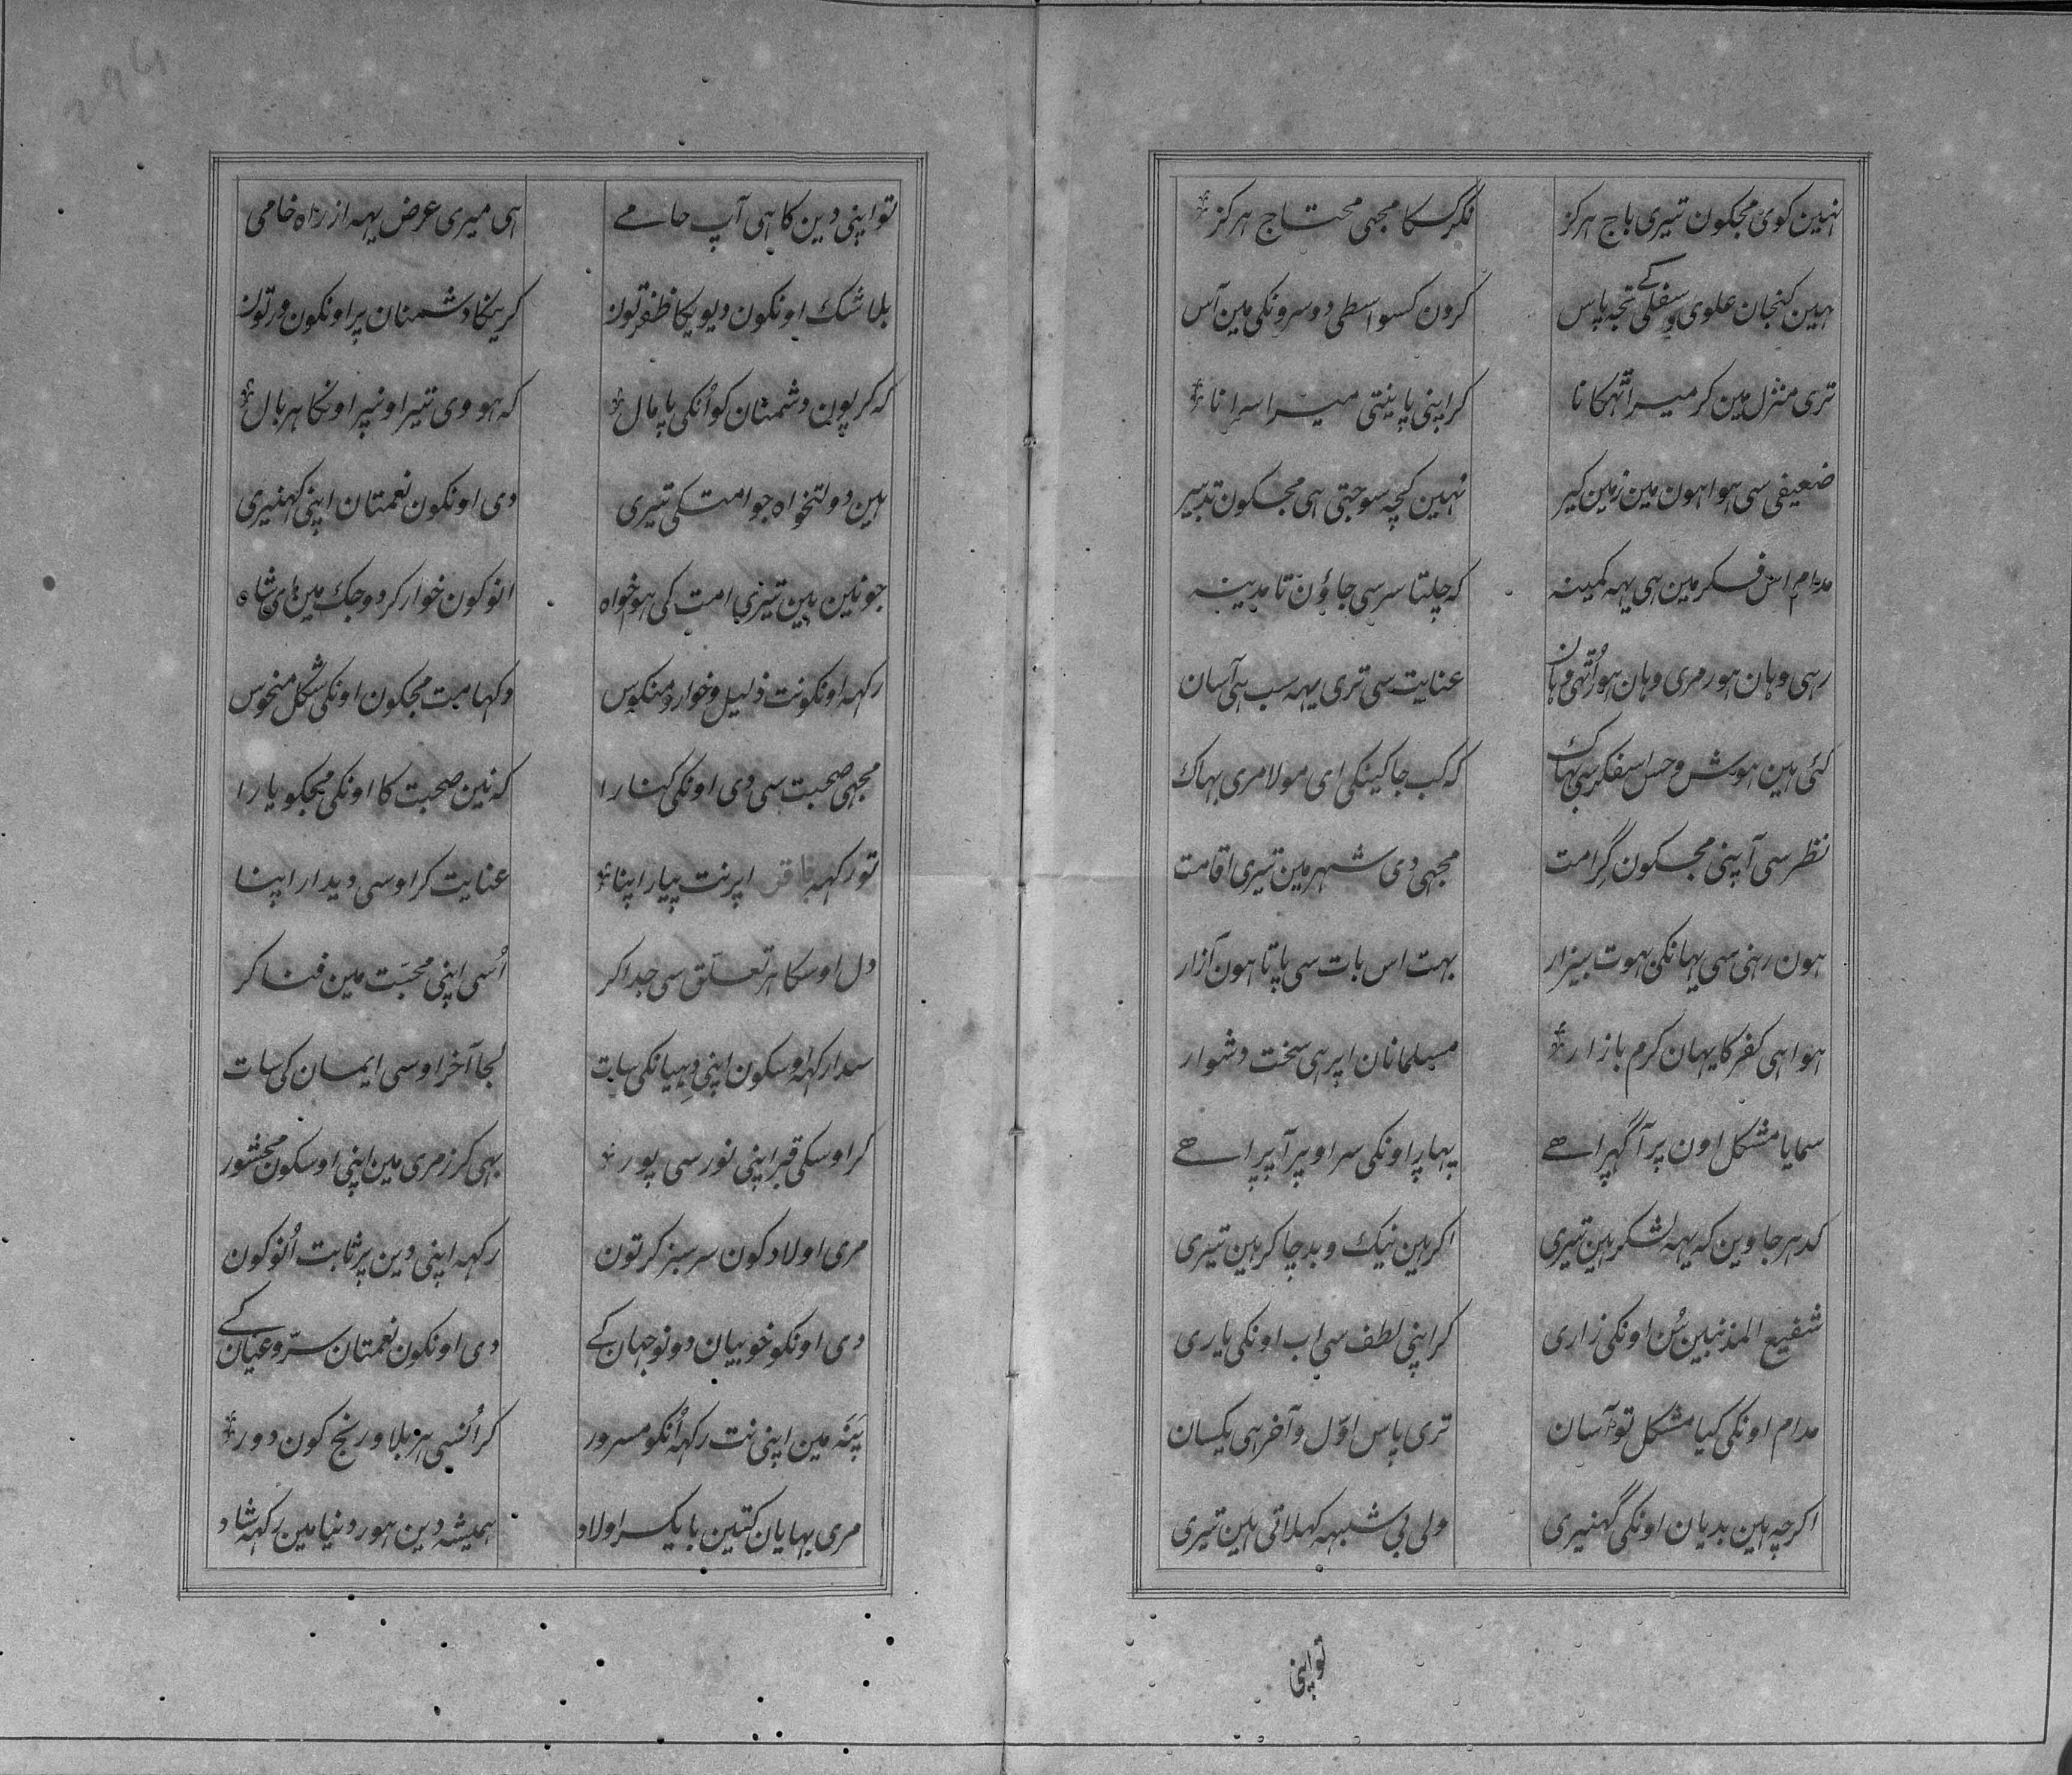 نہین کوئ مجکون تیری باج ہرکز نکر کسکا مجہی محتاج ہرکز
ہین کنجان علوی و سفلی کے تجہ پاس کرون کسواسطی دوسرونکی مین آس
تری منزل مین کر میرا تہکانا کر اپنی پاینتی میرا سرانا
ضعیفی سی ہوا ہون مین زمین کیر نہین کچہ سوجتی ہی مجکون تدبیر
مدام اس فکر مین ہی یہہ کمینہ کہ چلتا سر سی جاؤن تا مدینہ
رہی وہان ہور مری وہان ہور اُتہی وہان عنایت سی تری یہہ سب ہی آسان
کئی ہین ہوش و حس اسفکر سی بہاک کہ کب جاکینکی ای مولا مری بہاک
نظر سی آپنی مجکون کرامت مجہی دی شہر مین تیری اقامت
ہون رہنی سی یہانکی بہوت بیزار بہت اس بات سی پاتا ہون آزار
ہوا ہی کفر کا یہان کرم بازار مسلمانان اپر ہی سخت دشوار
سمایا مشکل اون پر آ کہڑا ہے پہاڑ اونکی سر اوپر آ پڑا ہے
کدہر جاوین کہ یہہ لشکر ہین تیری اکر ہین نیک و بد چاکر ہین تیری
شفیع المذنبین سُن اونکی زاری کر اپنی لطف سی اب اونکی یاری
مدام اونکی کیا مشکل تو آسان تری پاس اوّل و آخر ہی یکسان
اکرچہ ہین بدیان اونکی کہنیری ولی بی شبہہ کہلاتی ہین تیری
تو اپنی
تو اپنی دین کا ہی آپ حامے ہی میری عرض یہہ از راہ خامی
بلا شک اونکون دیویکا ظفر تون کریکا دشمنان پر اونکون ور تون
کہ کر یون دشمنان کو اُنکی پامال کہ ہووی تیرا اونپر اونکا ہر بال
ہین دولتخواہ جو امت کی تیری دی اونکون نعمتان اپنی کہنیری
جو نین ہین تیری امت کی ہوخواہ انوکون خوار کر دو جک مین ای شاہ
رکہہ اونکو نت ذلیل و خوار و منکوس دکہا مت مجکون اونکی شکل منحوس
مجہی صحبت سی دی اونکی کنارا کہ نین صحبت کا اونکی مجکو یارا
تو رکہہ باقر اپر نت پیار اپنا عنایت کر اوسی دیدار اپنا
دل اوسکا ہر تعلّق سی جدا کر اُسی اپنی محبّت مین فنا کر
سدا رکہہ اوسکون اپنی دہیانکی سات لجا آخر اوسی ایمان کی سات
کر اوسکی قبر اپنی نور سی پور بہی کر زمری مین اپنی اوسکون محشور
مری اولاد کون سرسبز کر تون رکہہ اپنی دین پر ثابت اُنوکون
دی اونکو خوبیان دونو جہان کے دی اونکون نعمتان سرّ و عیان کے
پَنَہ مین اپنی نت رکہہ اُنکو مسرور کر اُنسی ہر بلا و رنج کون دور
مری بہایان کتین با یکسر اولاد ہمیشہ دین ہور دنیا مین رکہہ شاد